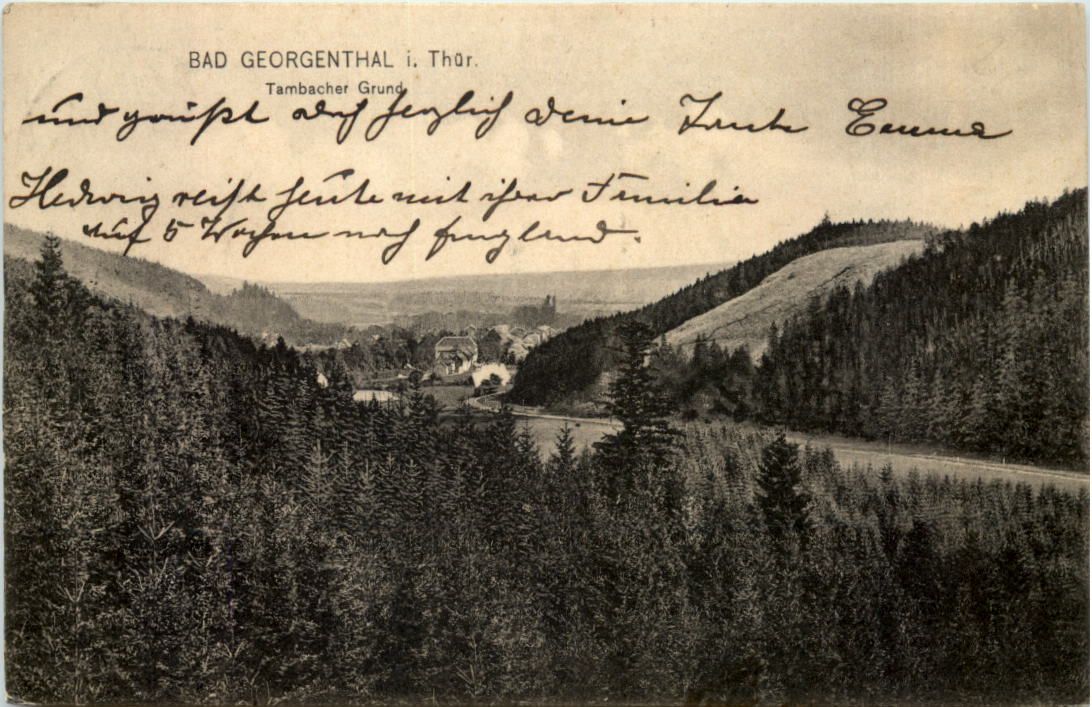 BAD GEORGENTHAL i. Thür.
Tambacher Grund
und grüßt dich herzlich deine Tante Emma
Hedwig reist heute mit ihrer Familie
auf 5 Wochen nach England.